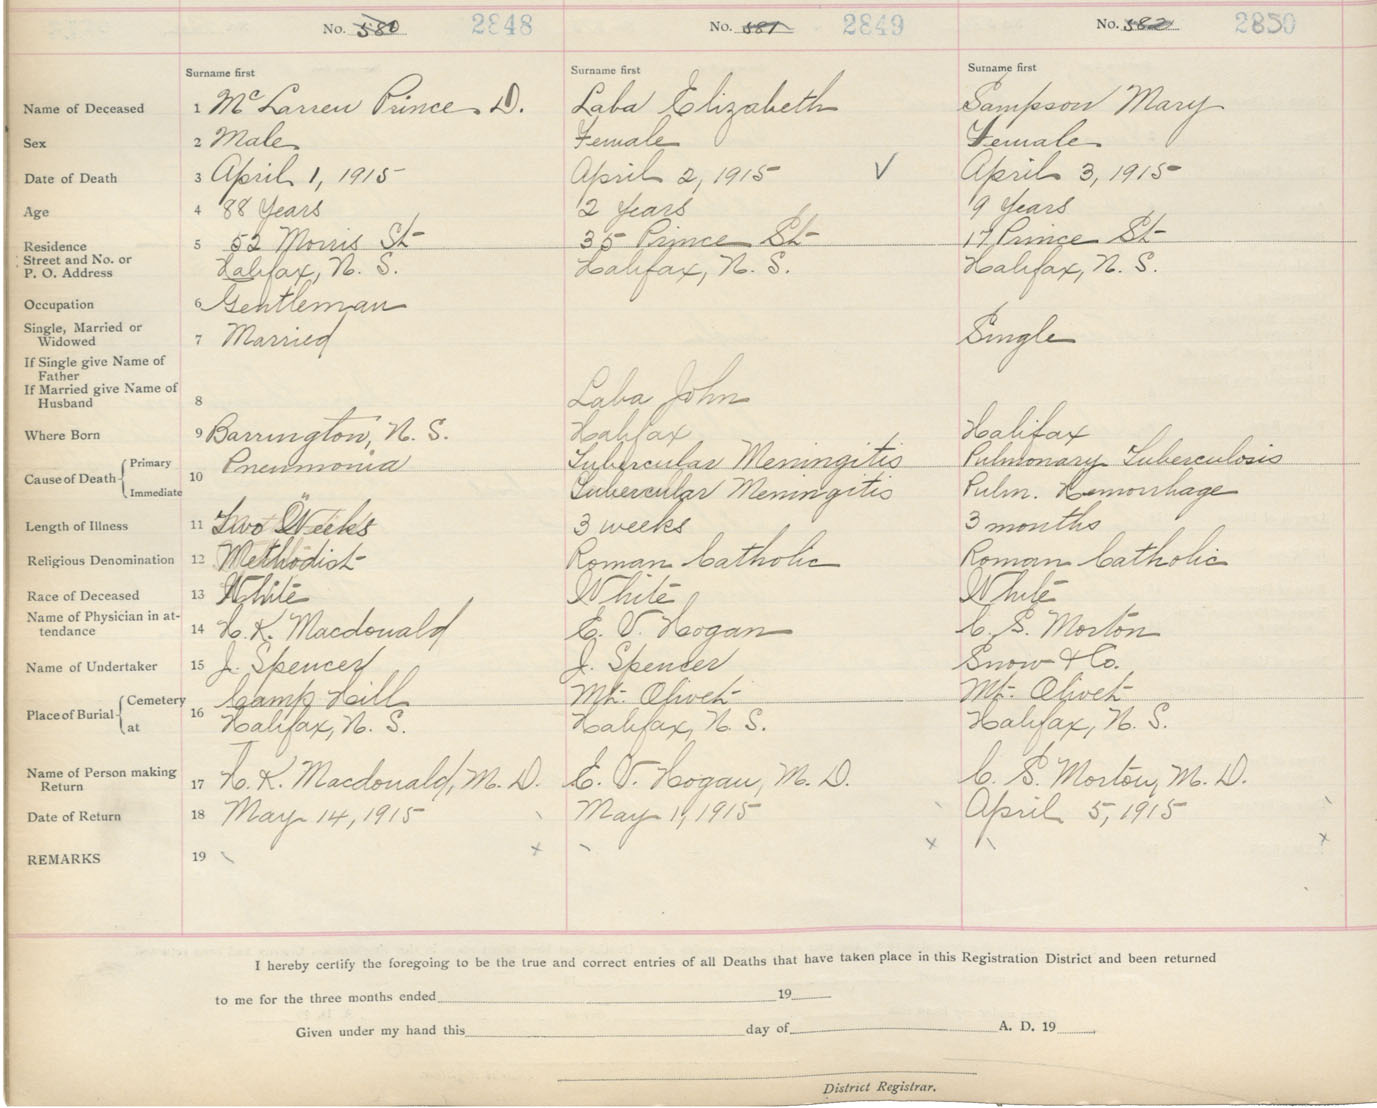 No. 580 2848 No. 581 2849 No. 582 2850
Surname first Surname first Surname first
Name of Deceased 1 McLarren Prince D. Laba Elizabeth Sampson Mary
Sex 2 Male Female Female
Date of Death 3 April 1, 1915 April 2, 1915 ✓ April 3, 1915
Age 4 88 Years 2 Years 9 Years
Residence 5 52 Morris St 35 Prince St 17 Prince St
Street and No. or
P. O. Address Halifax, N. S. Halifax, N. S. Halifax, N. S.
Occupation 6 Gentleman
Single, Married or
Widowed 7 Married Single
If Single give Name of
Father
If Married give Name of
Husband 8 Laba John
Where Born 9 Barrington, N. S. Halifax Halifax
Cause of Death Primary 10 Pneumonia Tubercular Meningitis Pulmonary Tuberculosis
Immediate Tubercular Meningitis Pulm. Hemorrhage
Length of Illness 11 Two Weeks 3 weeks 3 months
Religious Denomination 12 Methodist Roman Catholic Roman Catholic
Race of Deceased 13 White White White
Name of Physician in at-
tendance 14 H. K. Macdonald E. V. Hogan C. S. Morton
Name of Undertaker 15 J. Spencer J. Spencer Snow & Co.
Place of Burial Cemetery 16 Camp Hill Mt. Olivet Mt. Olivet
at Halifax, N. S. Halifax, N. S. Halifax, N. S.
Name of Person making
Return 17 H. K. Macdonald, M. D. E. V. Hogan, M. D. C. S. Morton, M. D.
Date of Return 18 May 14, 1915 May 1, 1915 April 5, 1915
REMARKS 19 x x x
I hereby certify the foregoing to be the true and correct entries of all Deaths that have taken place in this Registration District and been returned
to me for the three months ended 19
Given under my hand this day of A. D. 19
District Registrar.